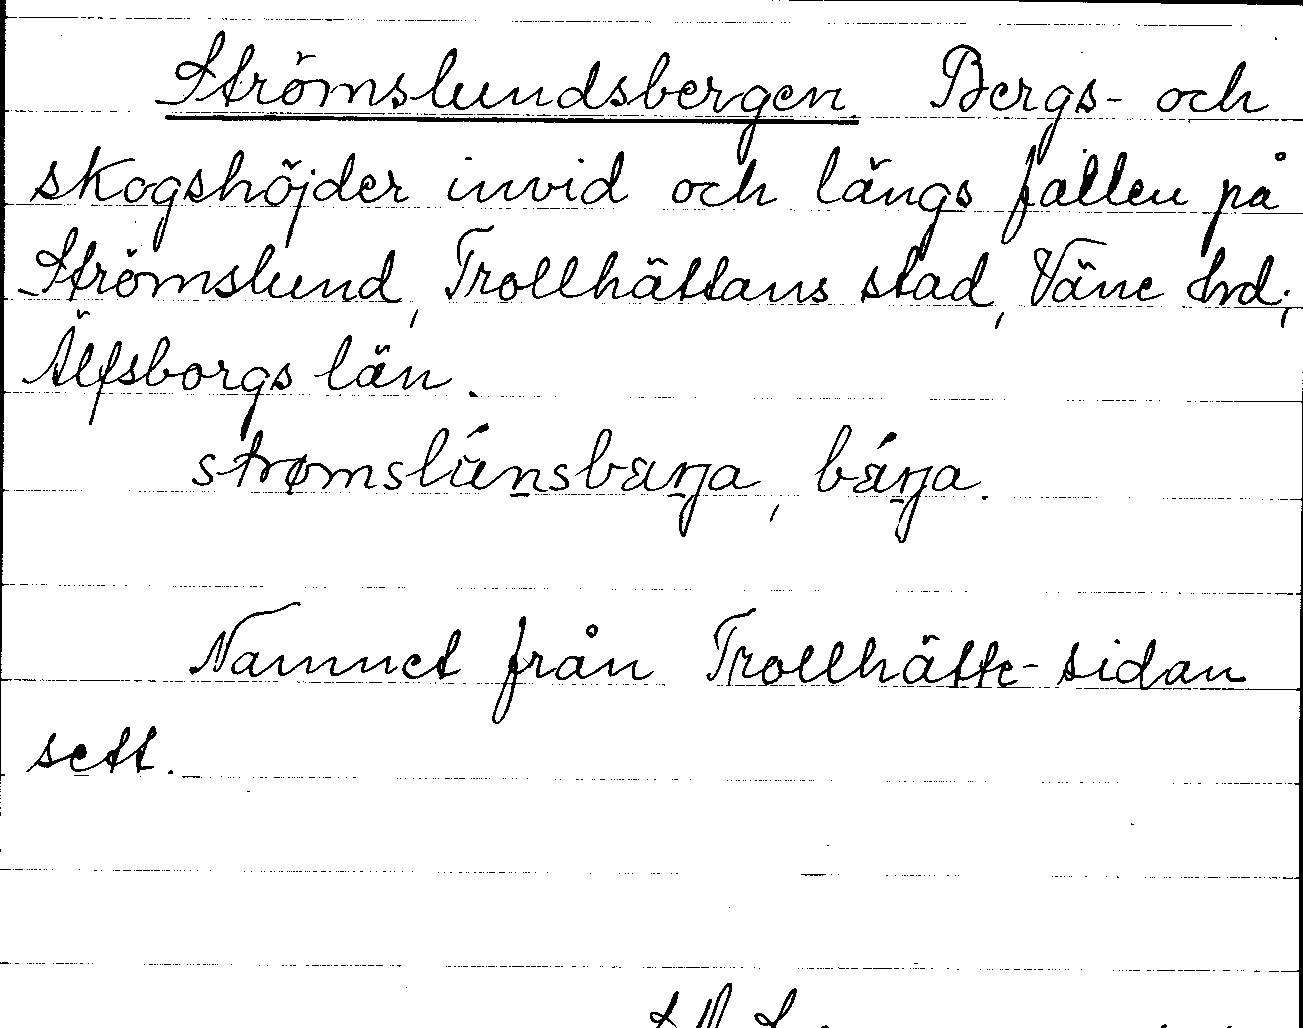 Strömslundsbergen Bergs- och
skogshöjder invid och längs fallen på
Strömslund, Trollhättans stad, Väne hrd,
Älfsborgs län.
strømslúnsbæŋa, bǽŋa.
Namnet från Trollhätte-sidan
sett.